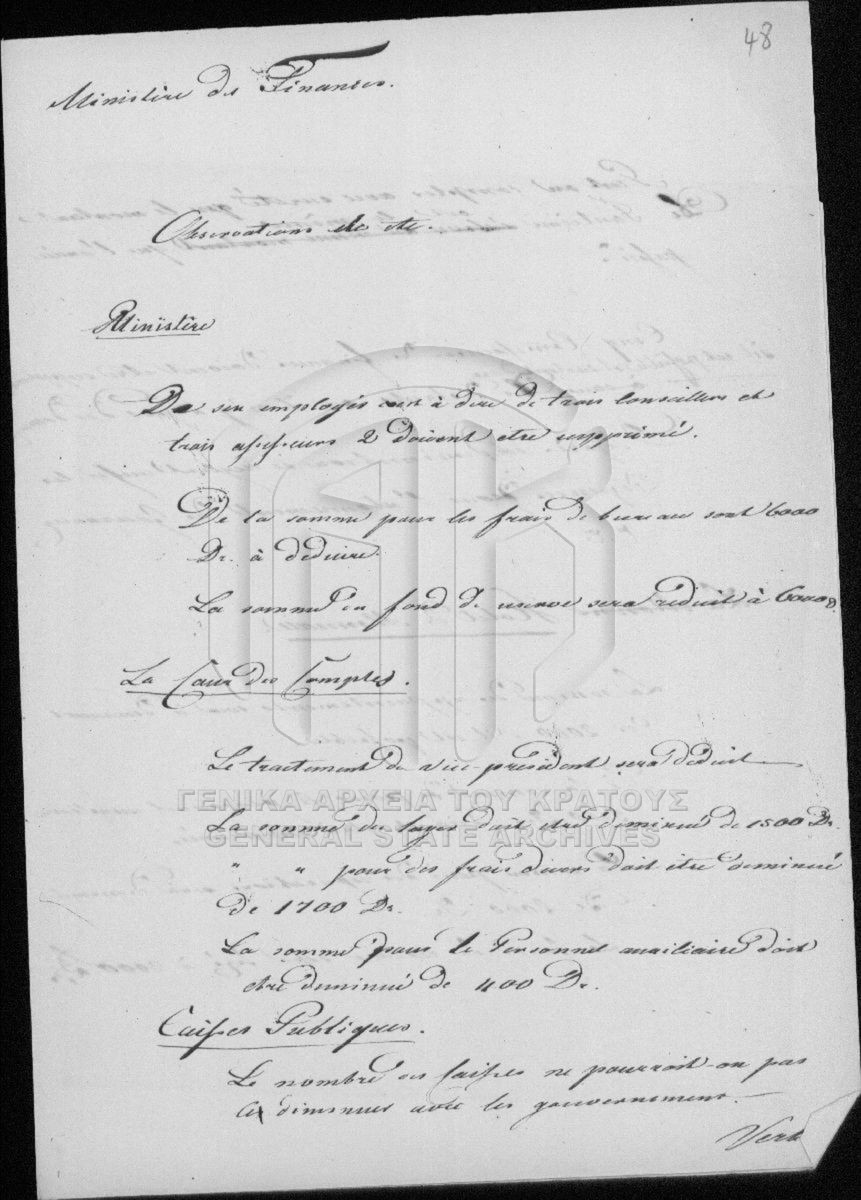 48
Ministère des Finances.
Observations etc etc.
Ministère
De six employés c'est à dire de trois Conseillers et
trois assesseurs 2 doivent etre supprimé.
De la somme pour les frais de bureau sont 6000
Dr. à deduire.
La somme en fond de reserve sera réduit à 6000 D.
La Cour des Comptes.
Le traitement du vice-président sera déduit
La somme du loyer doit etre diminué de 1500 Dr.
" " pour des frais divers doit être diminué
de 1700 Dr.
La somme pour le Personnel auxiliaire doit
etre diminué de 400 Dr.
Caisses Publiques.
Le nombre des Caisses ne pourroit-on pas
les diminuer avec les gouvernements.
ΓΕΝΙΚΑ ΑΡΧΕΙΑ ΤΟΥ ΚΡΑΤΟΥΣ
GENERAL STATE ARCHIVES